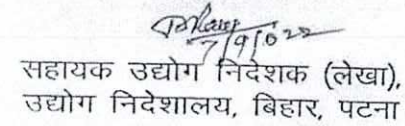 7/9/022
सहायक उद्योग निदेशक (लेखा),
उद्योग निदेशालय, बिहार, पटना